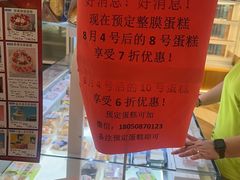 好消息！好消息！
现在预定整膜蛋糕
8月4号后的8号蛋糕
享受7折优惠！
8月4号后的10号蛋糕
享受6折优惠！
预定蛋糕可加
微信：18050870123
备注预定蛋糕即可